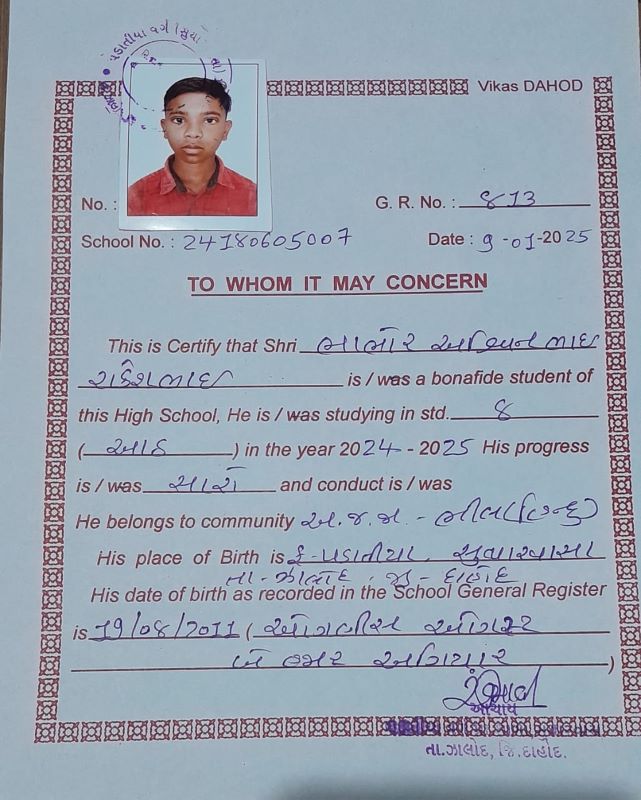 પડાતીયા વર્ગ
Vikas DAHOD
No. :
G. R. No. : ૮૧૩
School No. : 24180605007
Date : 9-01-2025
TO WHOM IT MAY CONCERN
This is Certify that Shri ભાભોર અશ્વિનભાઇ
રાકેશભાઇ is / was a bonafide student of
this High School, He is / was studying in std. 8
( આઠ ) in the year 2024 - 2025 His progress
is / was સારો and conduct is / was
He belongs to community અ.જ.જા. - ભીલ (હિન્દુ)
His place of Birth is મુ-પડાતીયા.
તા-ઝાલોદ. જી-દાહોદ
His date of birth as recorded in the School General Register
is 19/08/2011 ( ઓગણીસ ઓગસ્ટ
બે હજાર અગિયાર )
આચાર્ય
તા.ઝાલોદ, જિ.દાહોદ.